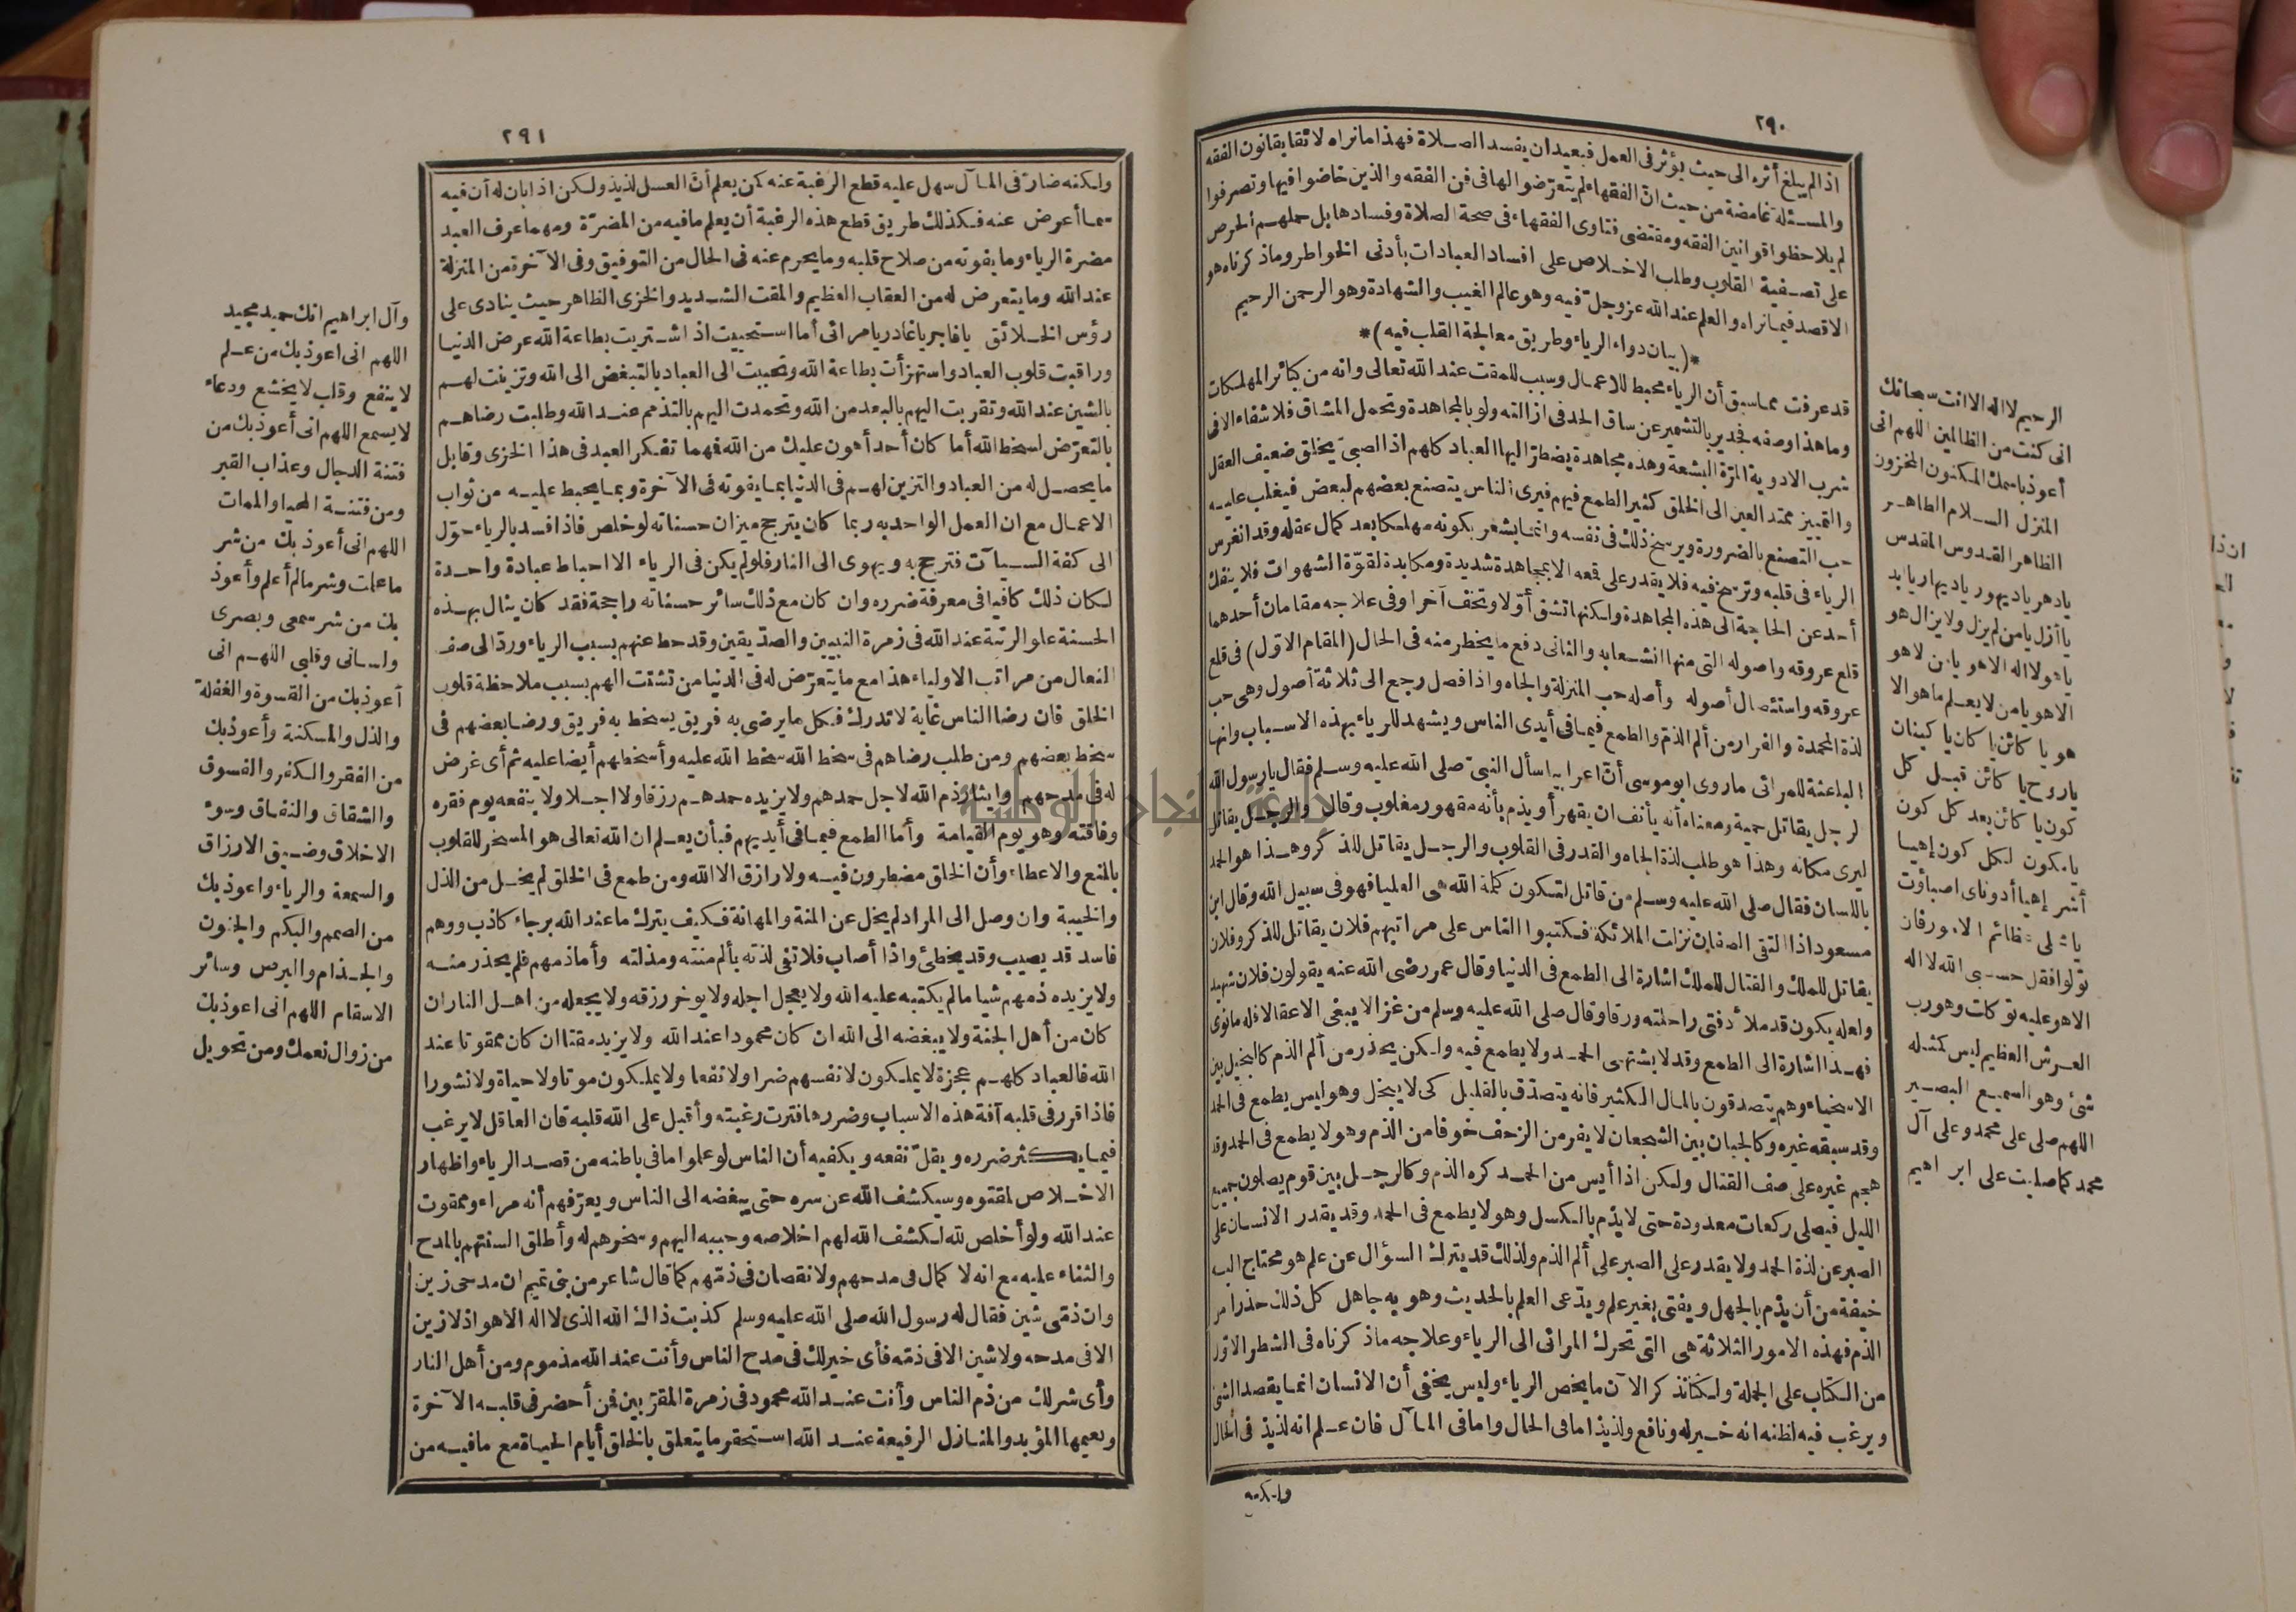 ٢٩٠
اذا لم يبلغ أثره الى حيث يؤثر فى العمل فبعيد ان يفسد الصلاة فهذا ما نراه لائقا بقانون الفقه
والمسئلة غامضة من حيث ان الفقهاء لم يتعرّضوا لها فى فن الفقه والذين خاضوا فيها وتصرفوا
لم يلاحظوا قوانين الفقه ومقتضى فتاوى الفقهاء فى صحة الصلاة وفسادها بل حملهم الحرص
على تصفية القلوب وطلب الاخلاص على افساد العبادات بأدنى الخواطر وماذكرناه هو
الاقصد فيما نراه والعلم عند الله عز وجل فيه وهو عالم الغيب والشهادة وهو الرحمن الرحيم
*(بيان دواء الرياء وطريق معالجة القلب فيه)*
قد عرفت مما سبق أن الرياء محبط للاعمال وسبب للمقت عند الله تعالى وانه من كبائر المهلكات
وما هذا وصفه فجدير بالتشمير عن ساق الجد فى ازالته ولو بالمجاهدة وتحمل المشاق فلا شفاء الا فى
شرب الادوية المرّة البشعة وهذه مجاهدة يضطرّ اليها العباد كلهم اذ الصبىّ يخلق ضعيف العقل
والتمييز ممتد العين الى الخلق كثير الطمع فيهم فيرى الناس يتصنع بعضهم لبعض فيغلب عليه
حب التصنع بالضرورة ويرسخ ذلك فى نفسه وانما يشعر بكونه مهلكا بعد كمال عقله وقد انغرس
الرياء فى قلبه وترسخ فيه فلا يقدر على قمعه الا بمجاهدة شديدة ومكابدة لقوّة الشهوات فلا ينفك
أحد عن الحاجة الى هذه المجاهدة ولكنها تشق أوّلا وتخف آخرا وفى علاجه مقامان أحدهما
قلع عروقه واصوله التى منها انشعابه والثانى دفع ما يخطر منه فى الحال (المقام الاوّل) فى قلع
عروقه واستئصال أصوله وأصله حب المنزلة والجاه واذا فصل رجع الى ثلاثة أصول وهى حب
لذة المحمدة والفرار من ألم الذم والطمع فيما فى أيدى الناس ويشهد للرياء بهذه الاسباب وانها
الباعثة للمرائى ماروى ابو موسى أنّ اعرابيا سأل النبىّ صلى الله عليه وسلم فقال يا رسول الله
الرجل يقاتل حمية ومعناه أنه يأنف ان يقهر أو يذم بأنه مقهور مغلوب وقال والرجل يقاتل
ليرى مكانه وهذا هو طلب لذة الجاه والقدر فى القلوب والرجل يقاتل للذكر وهذا هو الحمد
باللسان فقال صلى الله عليه وسلم من قاتل لتكون كلمة الله هى العليا فهو فى سبيل الله وقال ابن
مسعود اذا التقى الصفان نزلت الملائكة فكتبوا الناس على مراتبهم فلان يقاتل للذكر وفلان
يقاتل للملك والقتال للملك اشارة الى الطمع فى الدنيا وقال عمر رضى الله عنه يقولون فلان شهيد
ولعله يكون قد ملأ دفتى راحلته ورقا وقال صلى الله عليه وسلم من غزا لا يبغى الا عقالا فله مانوى
فهذا اشارة الى الطمع وقد لا يشتهى الحمد ولا يطمع فيه ولكن يحذر من ألم الذم كالبخيل بين
الاسخياء وهم يتصدقون بالمال الكثير فانه يتصدّق بالقليل كى لا يبخل وهو ليس يطمع فى الحمد
وقد سبقه غيره وكالجبان بين الشجعان لا يفر من الزحف خوفا من الذم وهو لا يطمع فى الحمد وقد
هجم غيره على صف القتال ولكن اذا أيس من الحمد كره الذم وكالرجل بين قوم يصلون جميع
الليل فيصلى ركعات معدودة حتى لا يذم بالكسل وهو لا يطمع فى الحمد وقد يقدر الانسان على
الصبر عن لذة الحمد ولا يقدر على الصبر على ألم الذم ولذلك قد يترك السؤال عن علم هو محتاج اليه
خيفة من أن يذم بالجهل ويفتى بغير علم ويدّعى العلم بالحديث وهو به جاهل كل ذلك حذرا من
الذم فهذه الامور الثلاثة هى التى تحرك المرائى الى الرياء وعلاجه ماذكرناه فى الشطر الاوّل
من الكتاب على الجملة ولكنا نذكر الآن ما يخص الرياء وليس يخفى أن الانسان انما يقصد الشئ
ويرغب فيه لظنه انه خير له ونافع ولذيذ اما فى الحال واما فى المآل فان علم انه لذيذ فى الحال
ولكنه
الرحيم لا اله الا انت سبحانك
انى كنت من الظالمين اللهم انى
أعوذ باسمك المكنون المخزون
المنزل السلام الطاهر
الظاهر القدوس المقدس
يا دهر يا ديهور يا ديهار يا ابد
يا أزل يا من لم يزل ولا يزال هو
يا هو لا اله الا هو يا من لا هو
الا هو يا من لا يعلم ما هو الا
هو يا كائن يا كان يا كينان
يا روح يا كائن قبل كل
كون يا كائن بعد كل كون
يا مكون لكل كون إهيا
أشر إهيا أدوناى اصبأوت
يا مجلى عظائم الامور فان
تولوا فقل حسبى الله لا اله
الا هو عليه توكلت وهو رب
العرش العظيم ليس كمثله
شئ وهو السميع البصير
اللهم صلى على محمد وعلى آل
محمد كما صليت على ابراهيم
٢٩١
ولكنه ضارّ فى المآل سهل عليه قطع الرغبة عنه كمن يعلم أنّ العسل لذيذ ولكن اذا بان له أن فيه
سما أعرض عنه فكذلك طريق قطع هذه الرغبة أن يعلم ما فيه من المضرّة ومهما عرف العبد
مضرة الرياء وما يفوته من صلاح قلبه وما يحرم عنه فى الحال من التوفيق وفى الآخرة من المنزلة
عند الله وما يتعرض له من العقاب العظيم والمقت الشديد والخزى الظاهر حيث ينادى على
رؤس الخلائق يا فاجر يا غادر يا مرائى أما استحييت اذ اشتريت بطاعة الله عرض الدنيا
وراقبت قلوب العباد واستهزأت بطاعة الله وتحببت الى العباد بالتبغض الى الله وتزينت لهم
بالشين عند الله وتقربت اليهم بالبعد من الله وتحمدت اليهم بالتذمم عند الله وطلبت رضاهم
بالتعرّض لسخط الله أما كان أحد أهون عليك من الله فهما تفكر العبد فى هذا الخزى وقابل
ما يحصل له من العباد والتزين لهم فى الدنيا بما يفوته فى الآخرة وبما يحبط عليه من ثواب
الاعمال مع ان العمل الواحد به ربما كان يترجح ميزان حسناته لو خلص فاذا فسد بالرياء حوّل
الى كفة السيآت فترجح به ويهوى الى النار فلو لم يكن فى الرياء الا احباط عبادة واحدة
لكان ذلك كافيا فى معرفة ضرره وان كان مع ذلك سائر حسناته راجحة فقد كان ينال بهذه
الحسنة علو الرتبة عند الله فى زمرة النبيين والصدّيقين وقد حط عنهم بسبب الرياء ورد الى صف
النعال من مراتب الاولياء هذا مع ما يتعرّض له فى الدنيا من تشتت الهم بسبب ملاحظة قلوب
الخلق فان رضا الناس غاية لا تدرك فكل ما يرضى به فريق يسخط به فريق ورضا بعضهم فى
سخط بعضهم ومن طلب رضاهم فى سخط الله سخط الله عليه وأسخطهم أيضا عليه ثم أى غرض
له فى مدحهم وايثار ذم الله لاجل حمدهم ولا يزيده حمدهم رزقا ولا اجلا ولا ينفعه يوم فقره
وفاقته وهو يوم القيامة وأما الطمع فيما فى أيديهم فبأن يعلم ان الله تعالى هو المسخر للقلوب
بالمنع والاعطاء وأن الخلق مضطرون فيه ولا رازق الا الله ومن طمع فى الخلق لم يخل من الذل
والخيبة وان وصل الى المراد لم يخل عن المنة والمهانة فكيف يترك ما عند الله برجاء كاذب ووهم
فاسد قد يصيب وقد يخطئ واذا أصاب فلا تفى لذته بألم منته ومذلته وأما ذمهم فلم يحذر منه
ولا يزيده ذمهم شيا ما لم يكتبه عليه الله ولا يعجل اجله ولا يوخر رزقه ولا يجعله من اهل النار ان
كان من أهل الجنة ولا يبغضه الى الله ان كان محمودا عند الله ولا يزيده مقتا ان كان ممقوتا عند
الله فالعباد كلهم عجزة لا يملكون لانفسهم ضرا ولا نفعا ولا يملكون موتا ولا حياة ولا نشورا
فاذا قرر فى قلبه آفة هذه الاسباب وضررها فترت رغبته وأقبل على الله قلبه فان العاقل لا يرغب
فيما يكثر ضرره ويقلّ نفعه ويكفيه أن الناس لو علموا ما فى باطنه من قصد الرياء واظهار
الاخلاص لمقتوه وسيكشف الله عن سره حتى يبغضه الى الناس ويعرّفهم أنه مراء وممقوت
عند الله ولو أخلص لله لكشف الله لهم اخلاصه وحببه اليهم وسخرهم له وأطلق السنتهم بالمدح
والثناء عليه مع انه لا كمال فى مدحهم ولا نقصان فى ذمّهم كما قال شاعر من بنى تميم ان مدحى زين
وان ذمّى شين فقال له رسول الله صلى الله عليه وسلم كذبت ذاك الله الذى لا اله الا هو اذ لا زين
الا فى مدحه ولا شين الا فى ذمّه فأى خير لك فى مدح الناس وأنت عند الله مذموم ومن أهل النار
وأى شر لك من ذم الناس وأنت عند الله محمود فى زمرة المقرّبين فمن أحضر فى قلبه الآخرة
ونعيمها المؤبد والمنازل الرفيعة عند الله استحقر ما يتعلق بالخلق أيام الحياة مع ما فيه من
وآل ابراهيم انك حميد مجيد
اللهم انى اعوذ بك من علم
لا ينفع وقلب لا يخشع ودعاء
لا يسمع اللهم انى أعوذ بك من
فتنة الدجال وعذاب القبر
ومن فتنة المحيا والممات
اللهم انى أعوذ بك من شر
ما علمت وشر مالم أعلم وأعوذ
بك من شر سمعى وبصرى
ولسانى وقلبى اللهم انى
أعوذ بك من القسوة والغفلة
والذل والمسكنة وأعوذ بك
من الفقر والكفر والفسوق
والشقاق والنفاق وسوء
الاخلاق وضيق الارزاق
والسمعة والرياء واعوذ بك
من الصمم والبكم والجنون
والجذام والبرص وسائر
الاسقام اللهم انى اعوذ بك
من زوال نعمك ومن تحويل
جامعة النجاح الوطنية